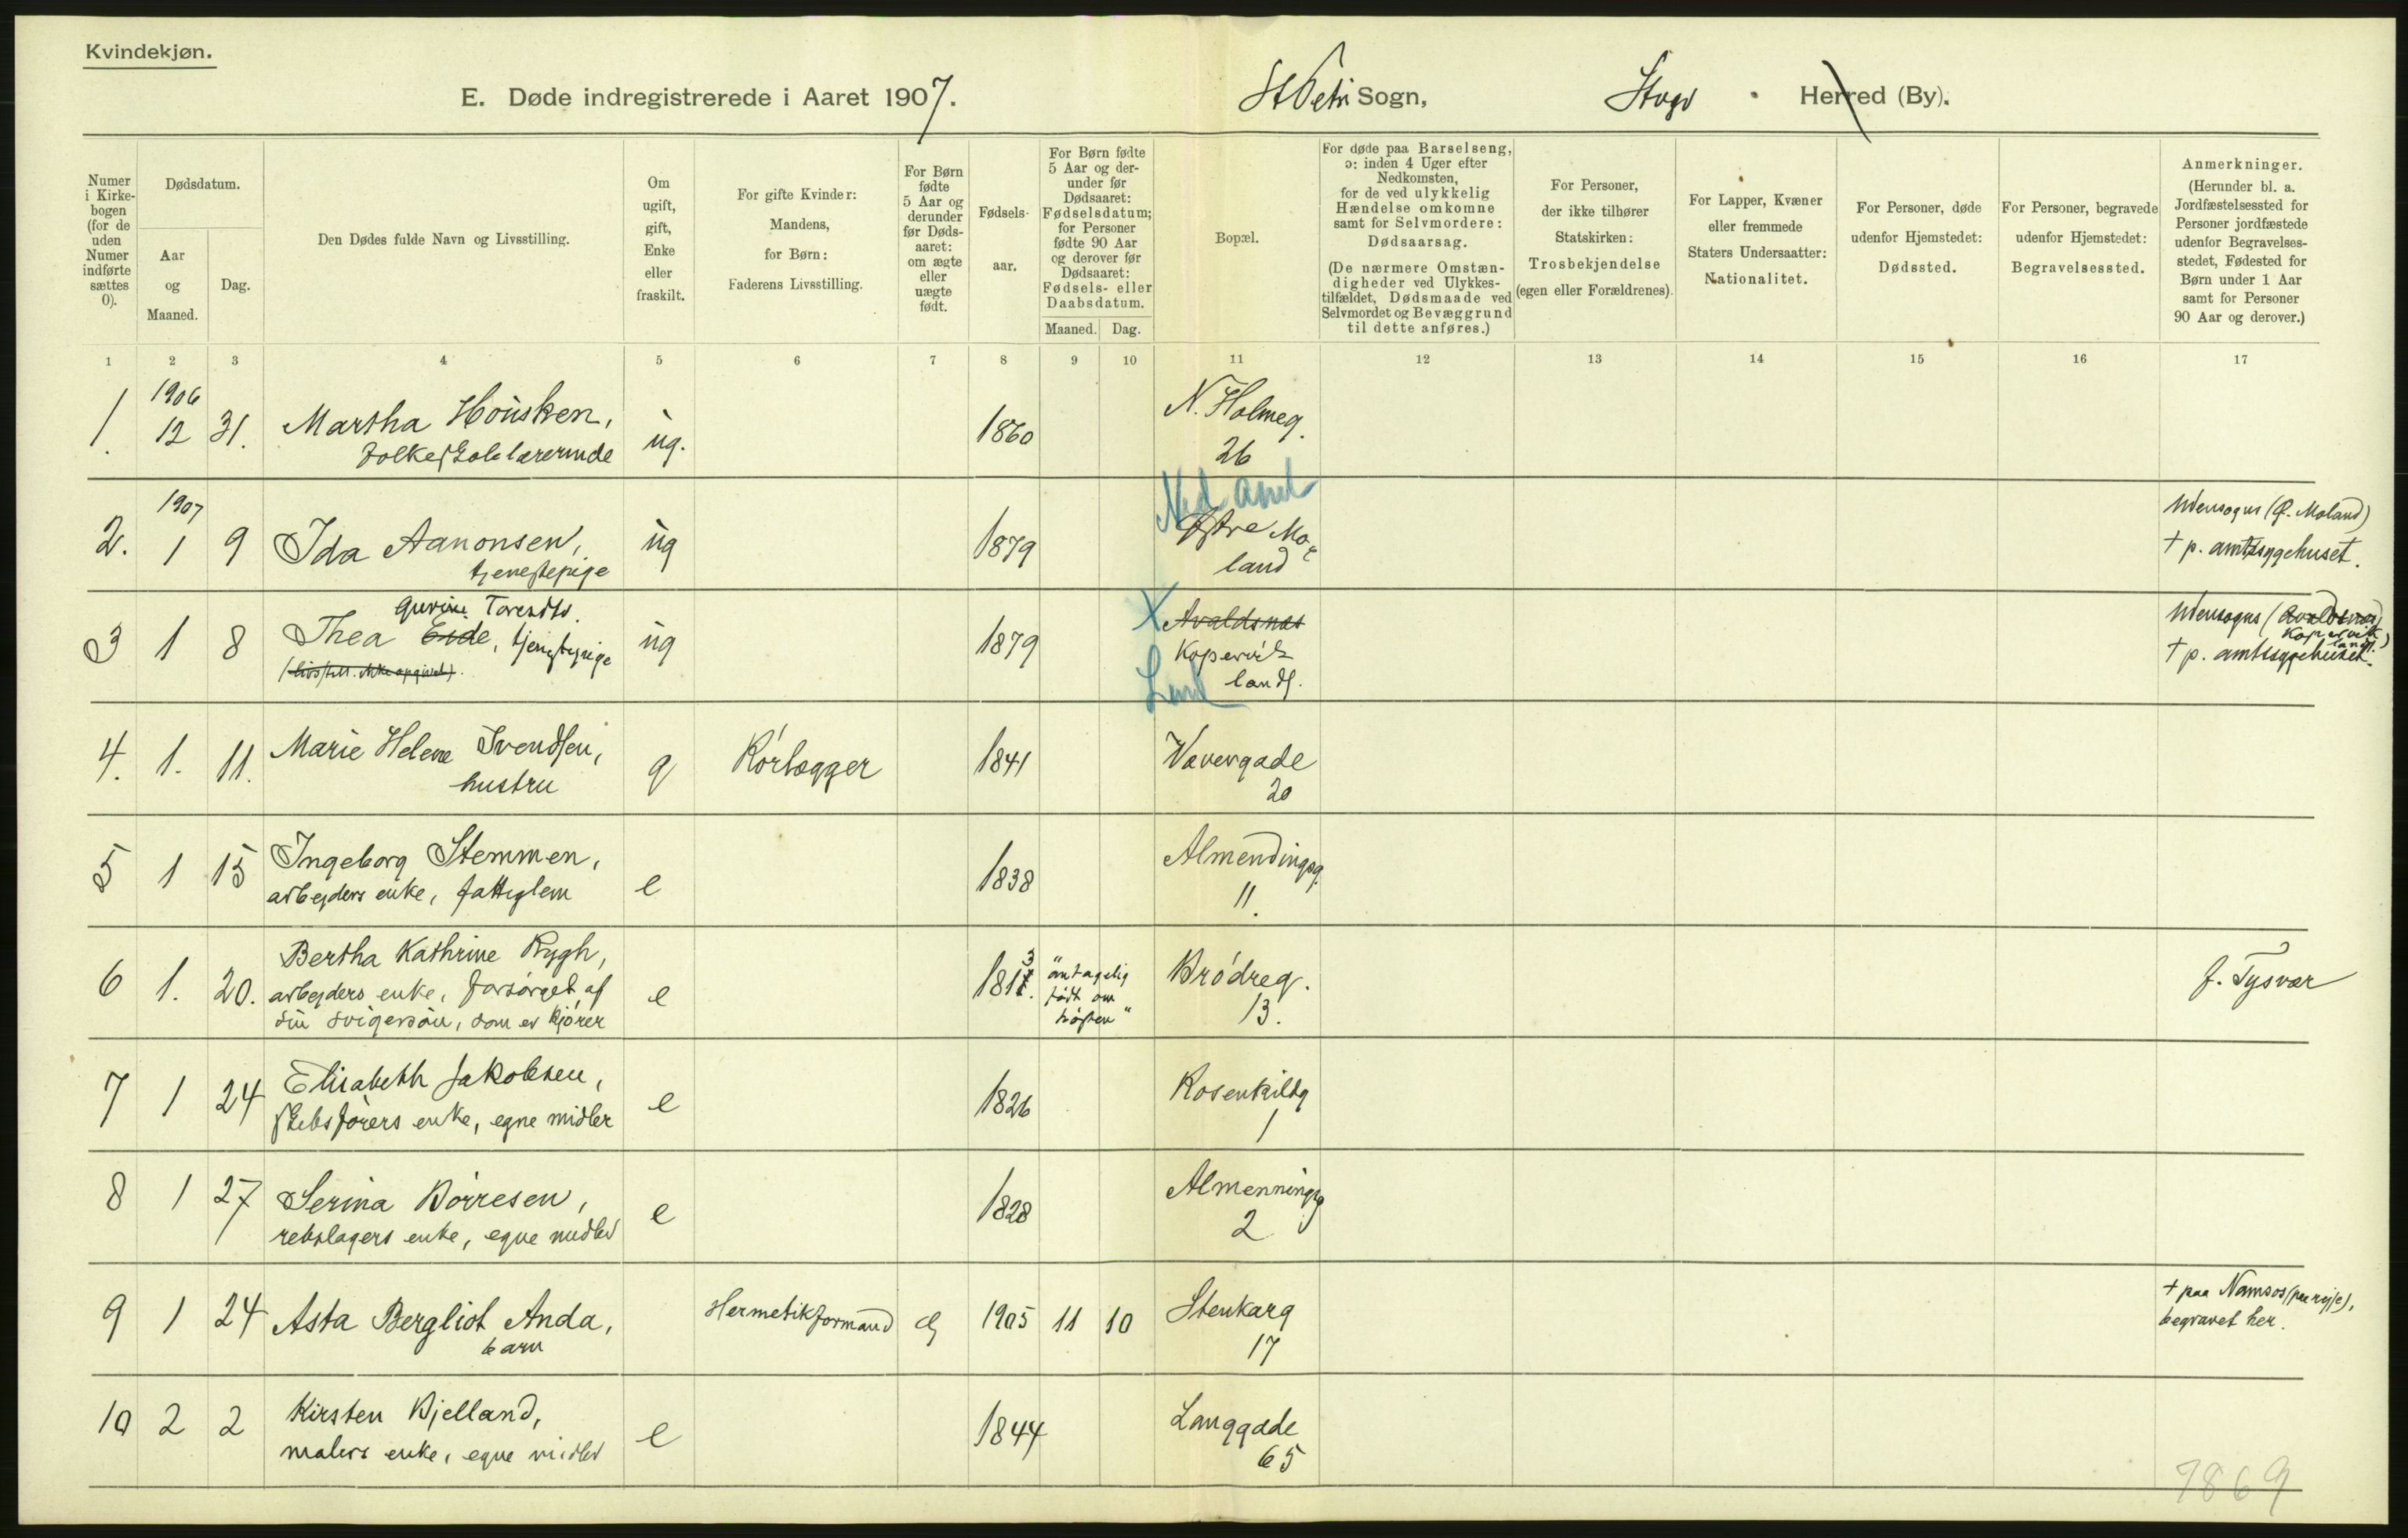 Kvindekjøn.
E. Døde indregistrerede i Aaret 1907.
St Petri Sogn,
Stvgr
Herred (By).
Numer
i Kirke-
bogen
(for de
uden
Numer
indførte
sættes
0).
Dødsdatum.
Aar
og
Maaned.
Dag.
Den Dødes fulde Navn og Livsstilling.
Om
ugift,
gift,
Enke
eller
fraskilt.
For gifte Kvinder:
Mandens,
for Børn:
Faderens Livsstilling.
For Børn
fødte
5 Aar og
derunder
før Døds-
aaret:
om ægte
eller
uægte
født.
Fødsels-
aar.
For Børn fødte
5 Aar og der-
under før
Dødsaaret:
Fødselsdatum;
for Personer
fødte 90 Aar
og derover før
Dødsaaret:
Fødsels- eller
Daabsdatum.
Maaned. Dag.
Bopæl.
For døde paa Barselseng,
ɔ: inden 4 Uger efter
Nedkomsten,
for de ved ulykkelig
Hændelse omkomne
samt for Selvmordere:
Dødsaarsag.
(De nærmere Omstæn-
digheder ved Ulykkes-
tilfældet, Dødsmaade ved
Selvmordet og Bevæggrund
til dette anføres.)
For Personer,
der ikke tilhører
Statskirken:
Trosbekjendelse
(egen eller Forældrenes).
For Lapper, Kvæner
eller fremmede
Staters Undersaatter:
Nationalitet.
For Personer, døde
udenfor Hjemstedet:
Dødssted.
For Personer, begravede
udenfor Hjemstedet:
Begravelsessted.
Anmerkninger.
(Herunder bl. a.
Jordfæstelsessted for
Personer jordfæstede
udenfor Begravelses-
stedet, Fødested for
Børn under 1 Aar
samt for Personer
90 Aar og derover.)
1 2 3 4 5 6 7 8 9 10 11 12 13 14 15 16 17
1906
1. 12 31. Martha Housken, ug. 1860 N. Holmeg.
folkeskolelærerinde 26
Ned. Amt
1907
2. 1 9 Ida Aanonsen, ug 1879 Østre Mo- Udensogns (Ø. Moland)
tjenestepige land † p. amtssygehuset.
Gurine Torendts.
3 1 8 Thea Eide, tjenestepige ug 1879 X Avaldsnes Udensogns (Avaldsnes)
(livsstill. ikke opgivet). Kopervik Kopervik
Land lands. lands.)
† p. amtssygehuset.
4. 1. 11. Marie Helene Svendsen, g Rørlægger 1841 Vævergade
hustru 20
5 1 15 Ingeborg Stemmen, e 1838 Almendingsg.
arbejders enke, fattiglem 11.
6 1. 20. Bertha Kathrine Rygh, e 1813 "antagelig Brødreg. f. Tysvær
arbejders enke, forsørget af født om 13.
sin svigersøn, som er kjører høsten"
7 1 24 Elisabeth Jakobsen, e 1826 Rosenkildg
skibsførers enke, egne midler 1
8 1 27 Serina Børresen, e 1828 Almenningsg
rebslagers enke, egne midler 2
9 1 24 Asta Bergliot Anda, Hermetikformand æ 1905 11 10 Stenkarg † paa Namsos (paa rejse),
barn 17 begravet her.
10 2 2 Kirsten Bjelland, e 1844 Langgade
malers enke, egne midler 65
7869